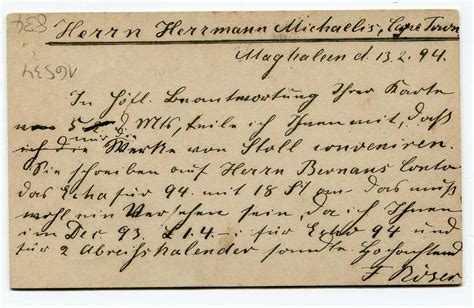 834
16534
Herrn Herrmann Michaelis, Cape Town
Maghaleen d. 13.2.94.
In Höfl. Beantwortung Ihrer Karte
5 d Mts, teile ich Ihnen mit, daß
mir die
ich die Werke von Stoll conveniren.
Sie schreiben auf Herrn Bernaus Conto
das Echo für 94. mit 18 S/ an. Das muß
wohl ein Versehen sein, da ich Ihnen
im Dec 93. £1.4-: für Echo 94 und
für 2 Abreißkalender sandte. Hochachtend
F Röser